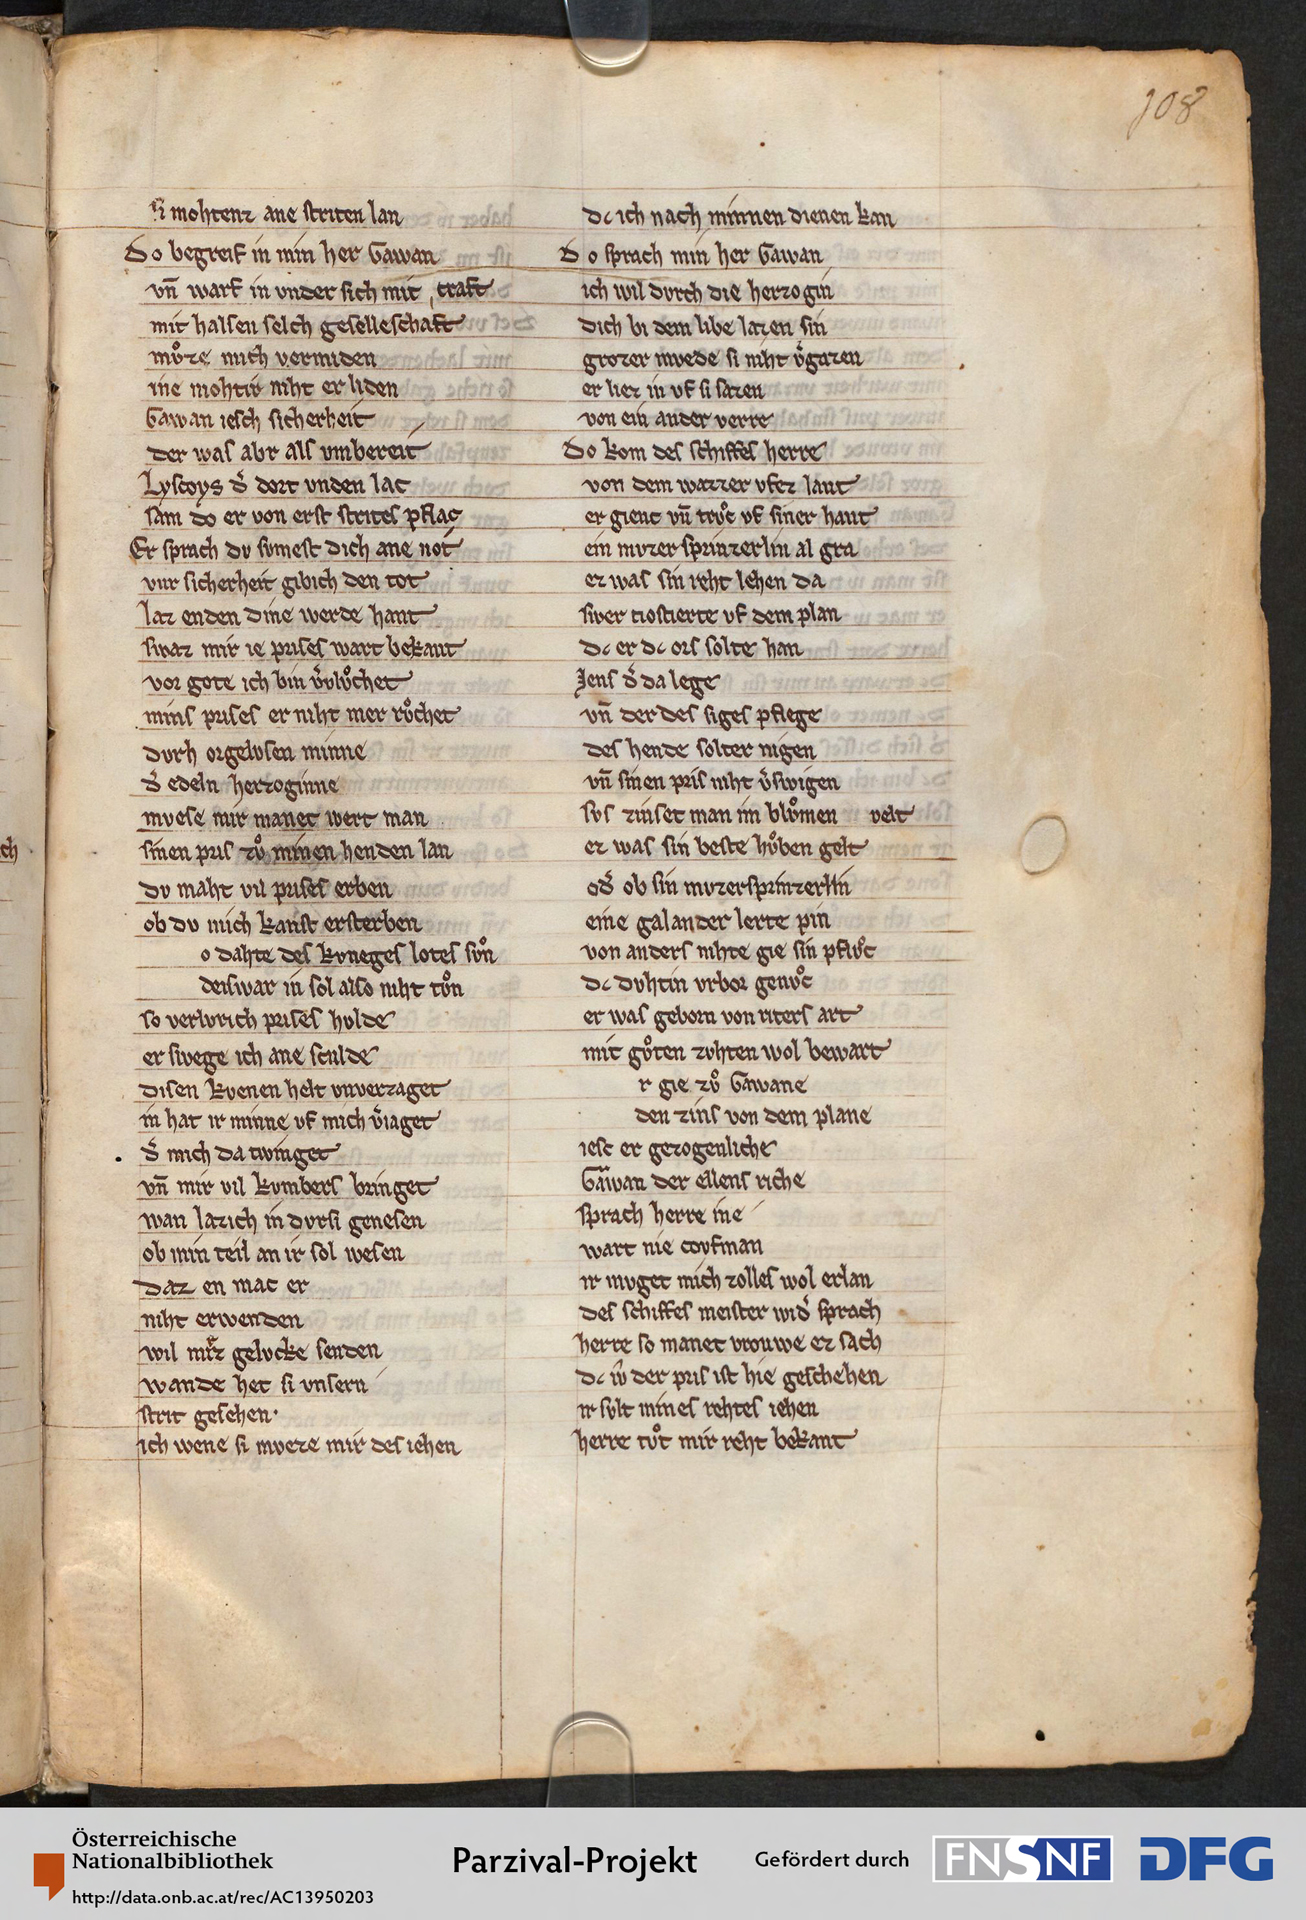 108
si mohtenz ane striten lan
Do begreif in min her Gawan
vn̄ warf in vnder sich mit craft
mit halsen selch geselleschaft
mvͦze mich vermiden
ine mohtir niht er liden
Gawan iesch sicherheit
der was abr als vmbereit
Lyscoys d̓ dort vnden lac
sam do er von erst strites pflac
Er sprach dv svmest dich ane not
vur sicherheit gibich den tot
laz enden dine werde hant
swaz mir ie prises wart bekant
vor gote ich bin v̓vlvͦchet
mins prises er niht mer rvͦchet
dvrh orgelvsen minne
d̓ edeln herzoginne
mvese mir manet wert man
sinen pris zvͦ minen henden lan
dv maht vil prises erben
ob dv mich kanst ersterben
o dahte des kvneges lotes svͦn
deiswar in sol also niht tvͦn
so verlvrich prises hvlde
er slvege ich ane sculde
disen kvenen helt vnverzaget
in hat ir minne vf mich v̓iaget
d̓ mich da twinget
vn̄ mir vil kvmbers bringet
wan lazich in dvrsi genesen
ob min teil an ir sol wesen
daz en mac er
niht erwenden
wil mirz gelvcke senden
wande het si vnsern
strit gesehen·
ich wene si mveze mir des iehen
dc ich nach minnen dienen kan
Do sprach min her Gawan
ich wil dvrch die herzogin
dich bi dem libe lazen sin
grozer mvede si niht v̓gazen
er liez in vf si sazen
von ein ander verre
Do kom des schiffes herre
von dem wazzer vfez lant
er gienc vn̄ trvͦc vf siner hant
ein mvzer sprinzerlin al gra
ez was sin reht lehen da
swer tiostierte vf dem plan
dc er dc ors solte han
Jens d̓ da lege
vn̄ der des siges pflege
des hende solter nigen
vn̄ sinen pris niht v̓swigen
svs zinset man im blvͦmen velt
ez was sin beste hvͦben gelt
od̓ ob sin mvzersprinzerlin
eine galander lerte pin
von anders nihte gie sin pflvͦc
dc dvhtin vrbor genvͦc
er was geborn von riters art
mit gvͦten zvhten wol bewart
r gie zvͦ Gawane
den zins von dem plane
iesc er gezogenliche
Gawan der ellens riche
sprach herre ine
wart nie covfman
ir mvget mich zolles wol erlan
des schiffes meister wid̓ sprach
herre so manet vrouwe ez sach
dc iv̓ der pris ist hie geschehen
ir svlt mines rehtes iehen
herre tvͦt mir reht bekant
ch
Österreichische
Nationalbibliothek
http://data.onb.ac.at/rec/AC13950203
Parzival-Projekt
Gefördert durch
FNSNF
DFG